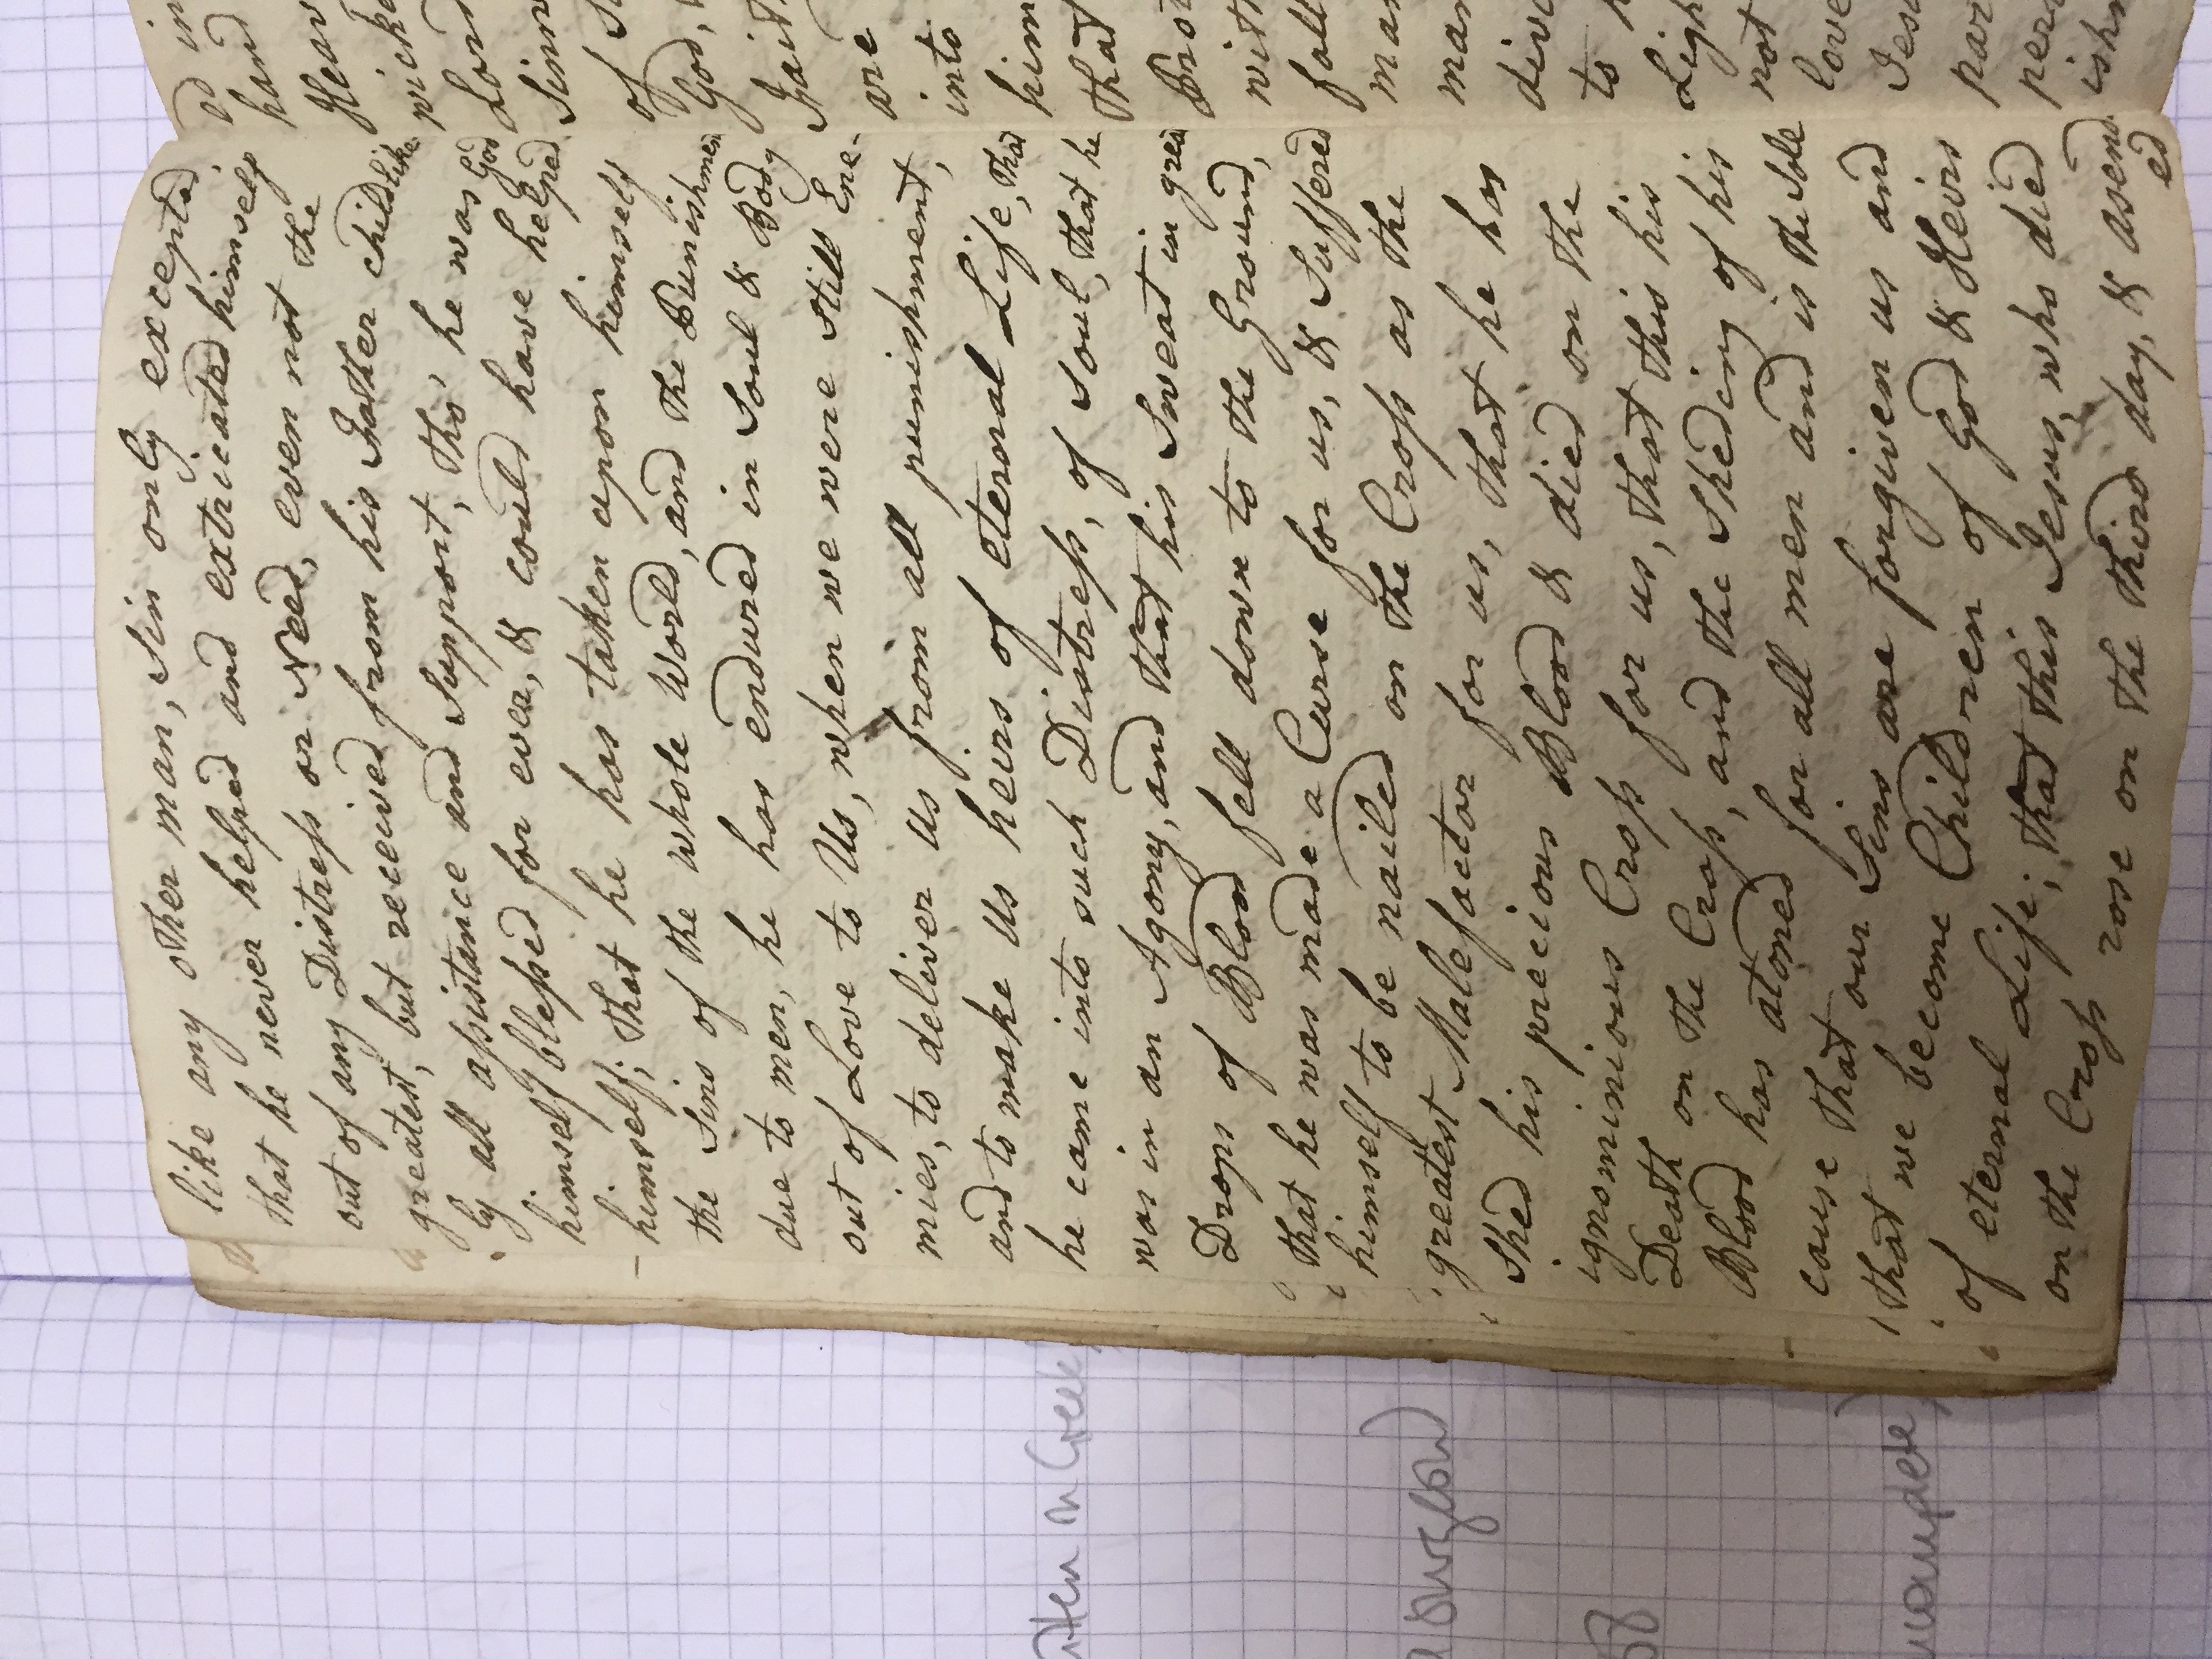 like any other man, Sin only excepted
that he never helped and extricated himself
out of any Distreſs or Need, even not the
greatest, but received from his Father childlike-
ly all aſsistance and Support, tho' he was God
himself bleſsed for ever, & could have helped
himself; that he has taken upon himself
the Sins of the whole World, and the Punishmen
due to men, he has endured in Soul & Body
out of Love to Us, when we were still Ene-
mies, to deliver us from all punishment,
and to make us heirs of eternal Life, that
he came into such Distreſs, of Soul, that he
was in an Agony, and that his Sweat in grea
Drops of Blood fell down to the Ground,
that he was made a Curse for us, & Suffered
himself to be nailed on the Croſs as the
greatest Malefactor for us, that he has
Shed his precious Blood & died on the
ignominious Croſs for us, that this his
Death on the Croſs, and the Sheding of his
Blood has atoned for all men and is the Sole
cause that our Sins are forgiven us and
that we become Children of God & Heirs
of eternal Life; that this Jesus, who died
on the Croſs rose on the third day, & asend
ed
ed in
hand
Heav
wicke
Lord
Sinn
of
God,
Fait
are
into
him
that
Prot
with
fall
man
man
divi
to
Ligh
not
love
Jesu
par
pers
ishm
surgeon
58